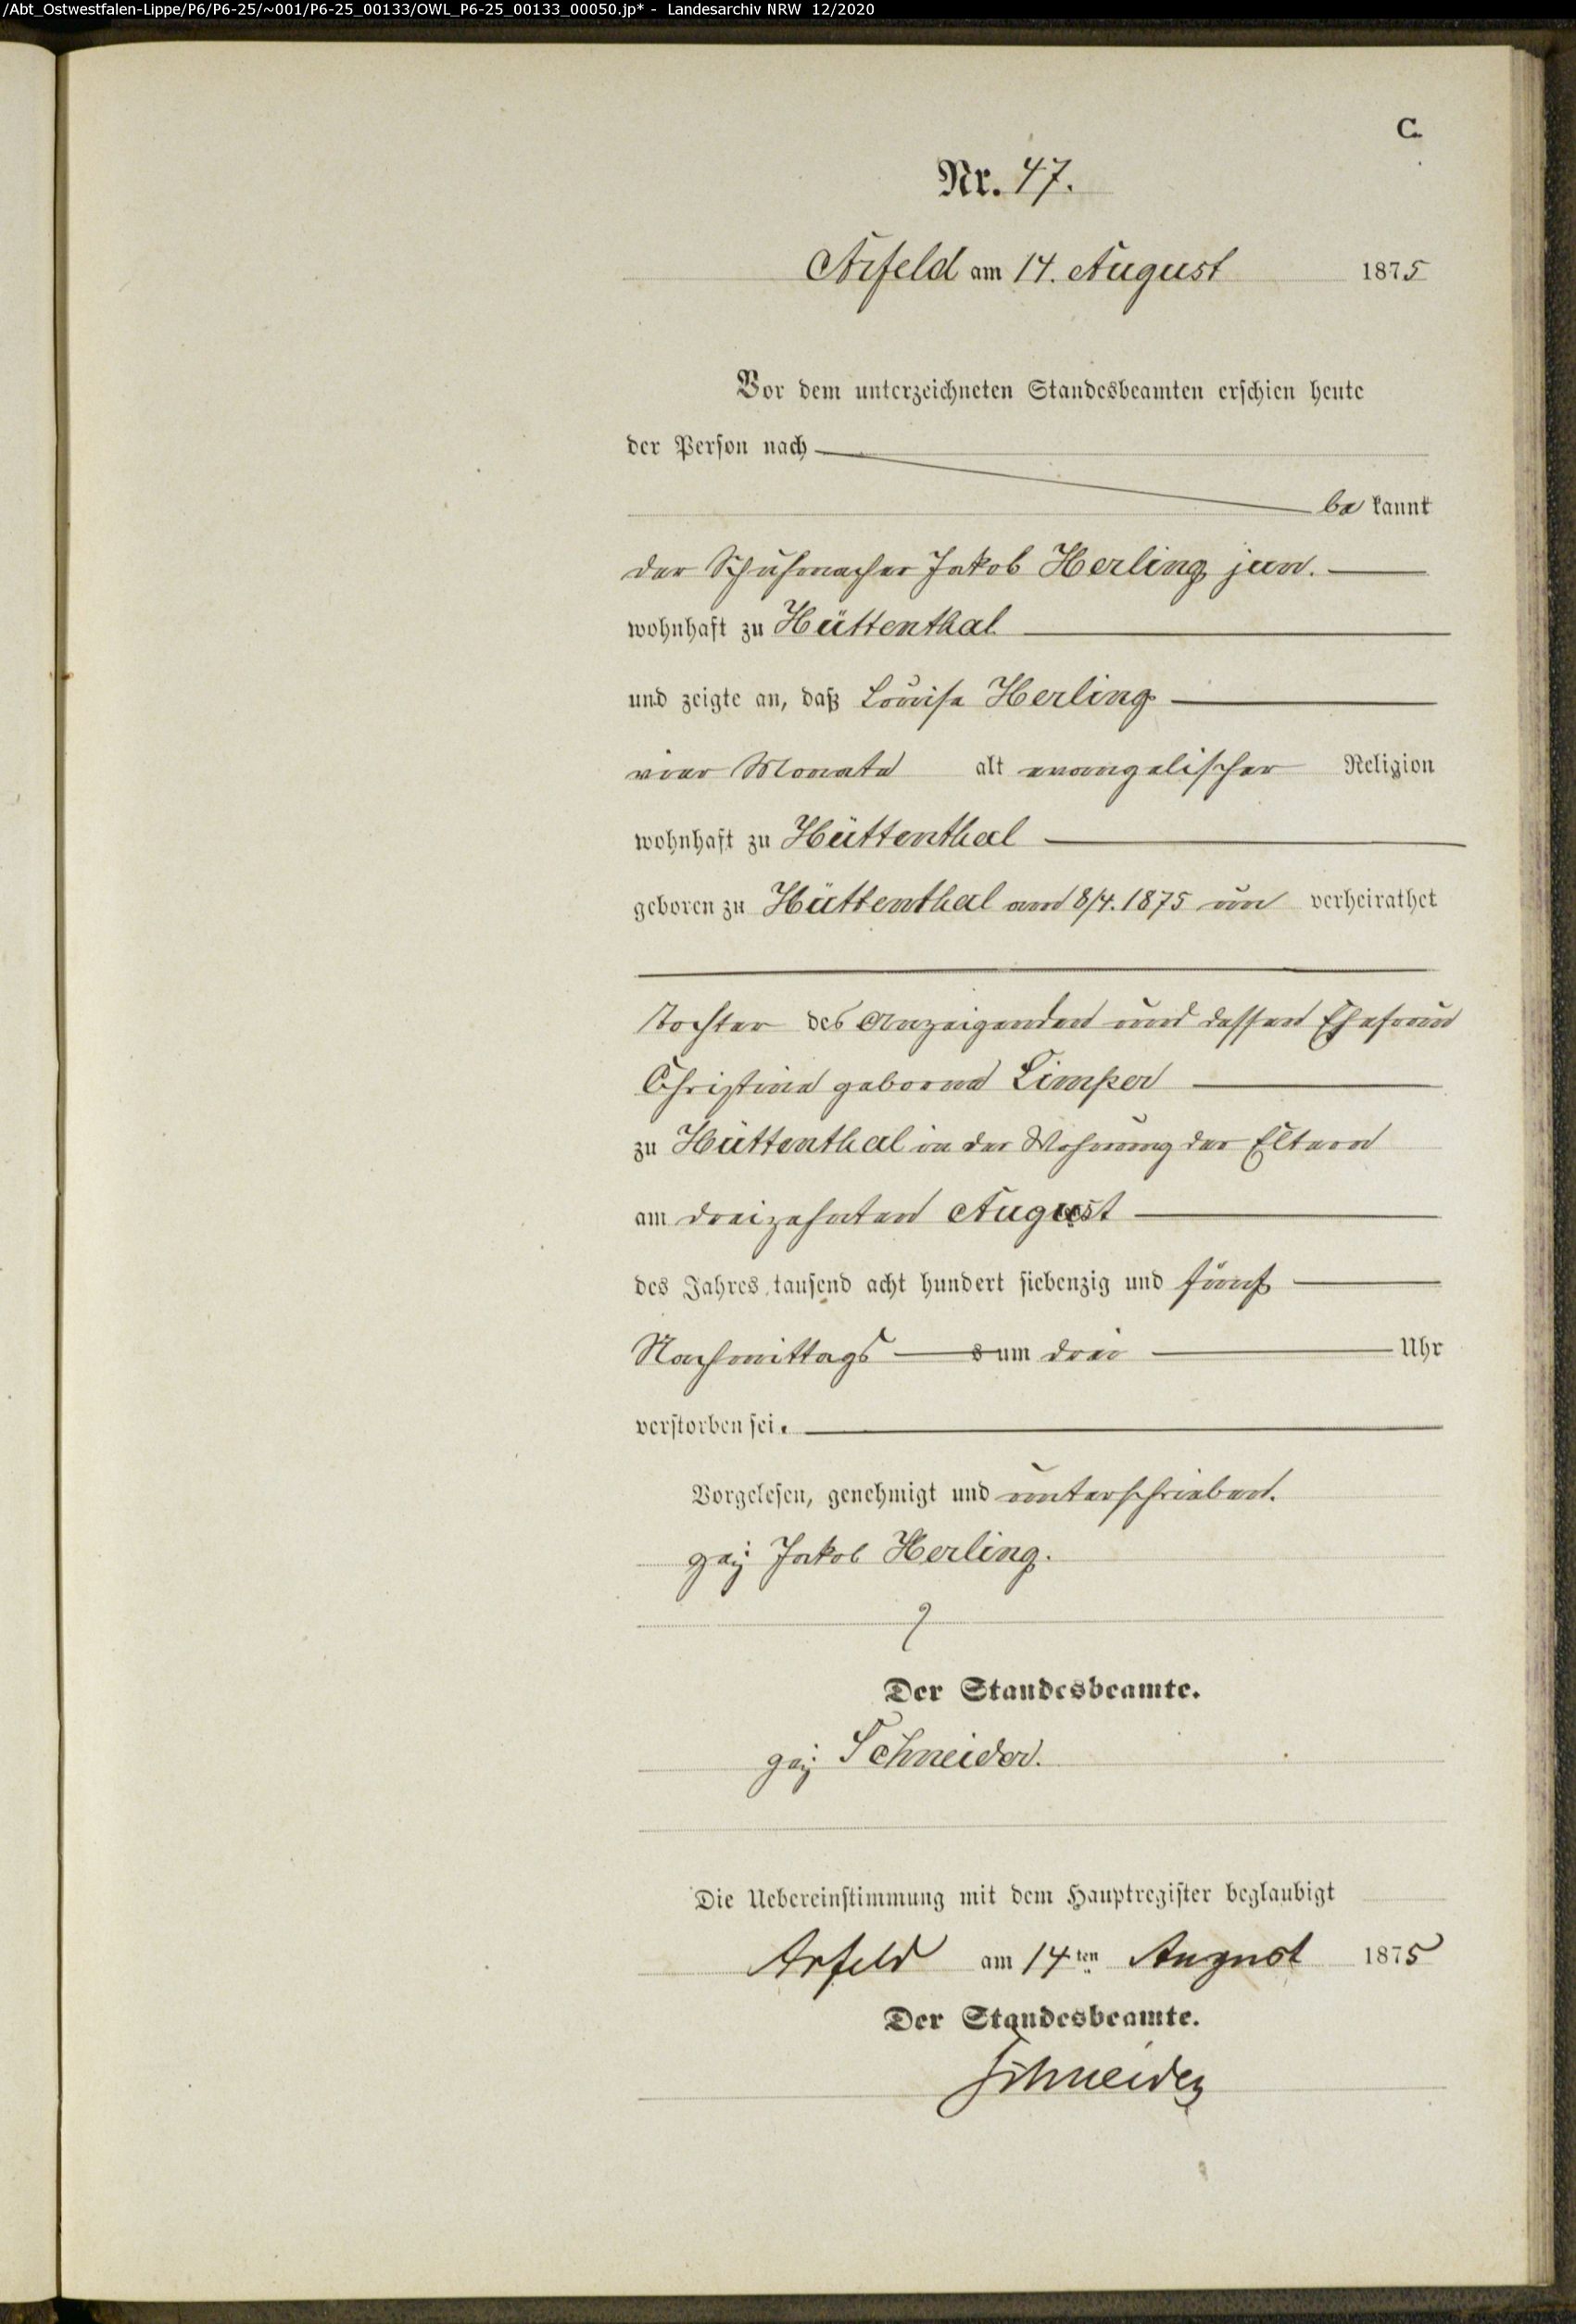 /Abt_Ostwestfalen-Lippe/P6/P6-25/~001/P6-25_00133/OWL_P6-25_00133_00050.jp* - Landesarchiv NRW 12/2020
C.
Nr. 47.
Arfeld am 14. August 1875
Vor dem unterzeichneten Standesbeamten erschien heute
der Person nach
be kannt
der Schuhmacher Jakob Herling jun.
wohnhaft zu Hüttenthal
und zeigte an, daß Louise Herling
vier Monate alt evangelischer Religion
wohnhaft zu Hüttenthal
geboren zu Hüttenthal am 8/4. 1875 un verheirathet
Tochter des Anzeigenden und dessen Ehefrau
Christine geborne Limper
zu Hüttenthal in der Wohnung der Eltern
am dreizehnten August
des Jahres tausend acht hundert siebenzig und fünf
Nachmittags s um drei Uhr
verstorben sei.
Vorgelesen, genehmigt und unterschrieben.
gez Jakob Herling.
Der Standesbeamte.
gez Schneider.
Die Uebereinstimmung mit dem Hauptregister beglaubigt
Arfeld am 14ten August 1875
Der Standesbeamte.
Schneider